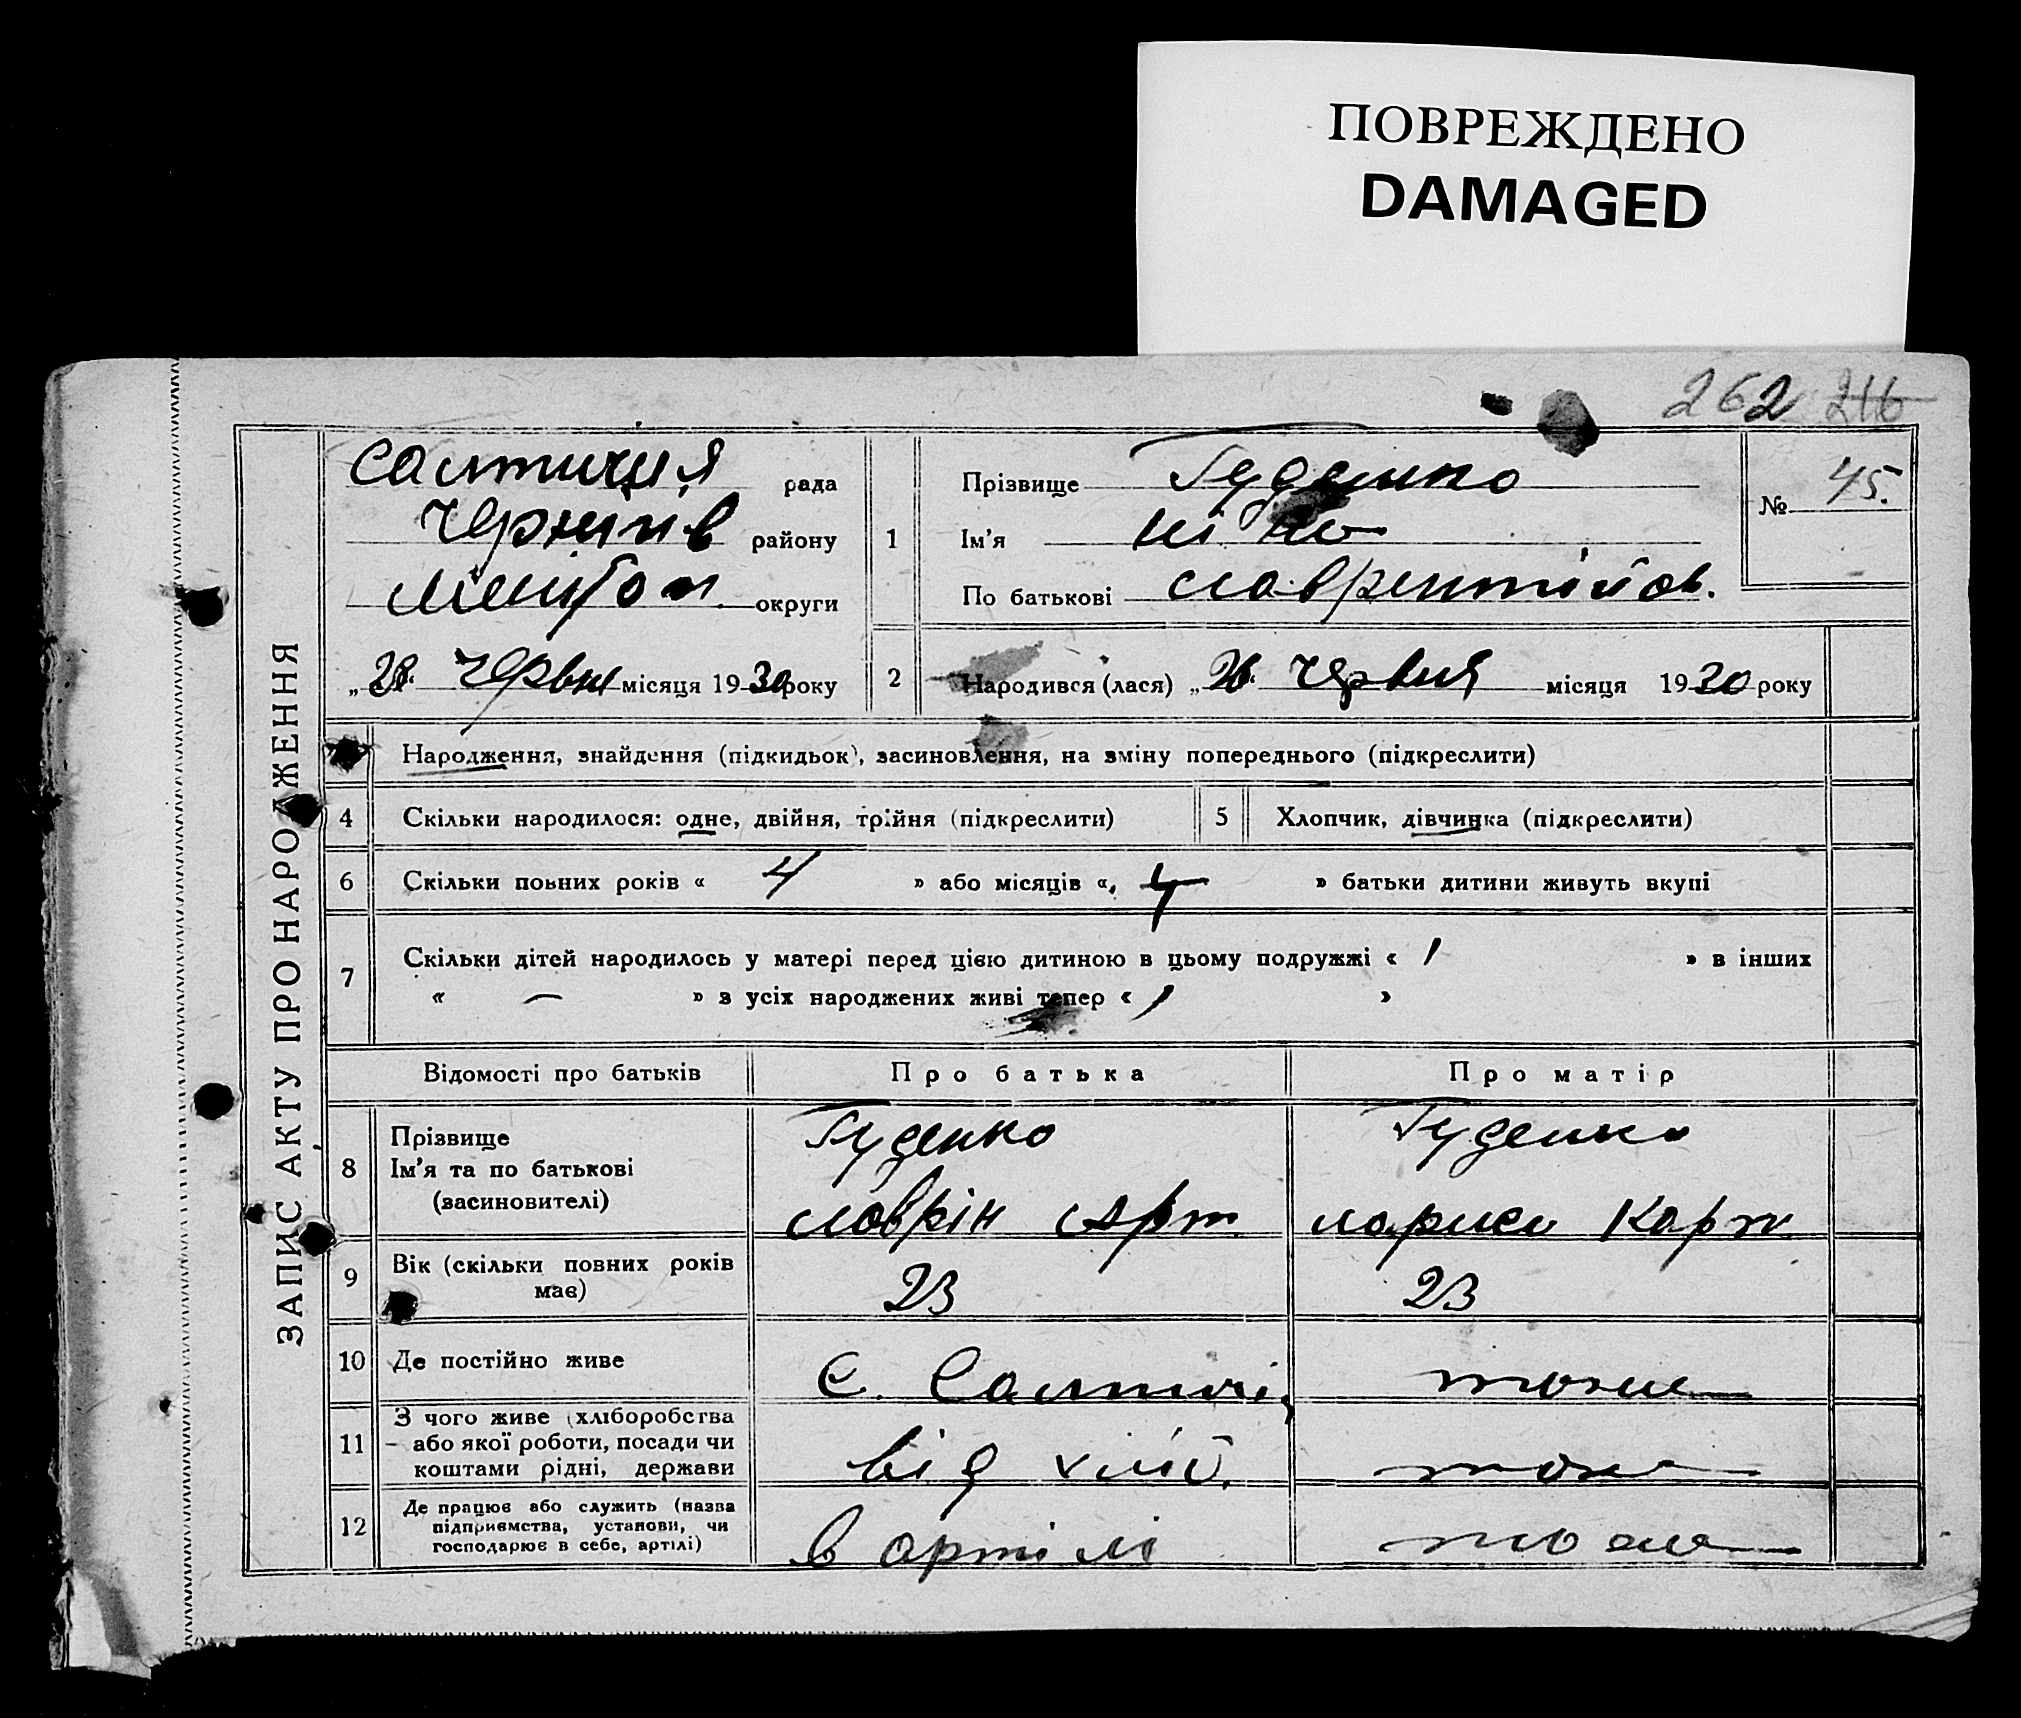 ПОВРЕЖДЕНО
DAMAGED
262 216
ЗАПИС АКТУ ПРО НАРОДЖЕННЯ
Салтиция рада
Чернигів району
Мелітоп. округи
„28." Червня місяця 1930 року
1
Прізвище Гуденко
Ім'я Ніно
По батькові Лаврентійов.
№ 45.
2
Народився (лася) „26." Червня місяця 1930 року
Народження, знайдення (підкидьок), засиновлення, на зміну попереднього (підкреслити)
4 Скільки народилося: одне, двійня, трійня (підкреслити)
5 Хлопчик, дівчинка (підкреслити)
6 Скільки повних років « 4 » або місяців « 4 » батьки дитини живуть вкупі
7 Скільки дітей народилось у матері перед цією дитиною в цьому подружжі « 1 » в інших
« — » з усіх народжених живі тепер « 1 »
Відомості про батьків Про батька Про матір
8 Прізвище
Ім'я та по батькові
(засиновителі)
Гуденко
Лаврін Арт.
Гуденко
Лариса Карп.
9 Вік (скільки повних років
має)
23 23
10 Де постійно живе С. Салтичія тоже
11 З чого живе (хліборобства
або якої роботи, посади чи
коштами рідні, держави
від хліб. тоже
12 Де працює або служить (назва
підприємства, установи, чи
господарює в себе, артілі)
в артілі тоже